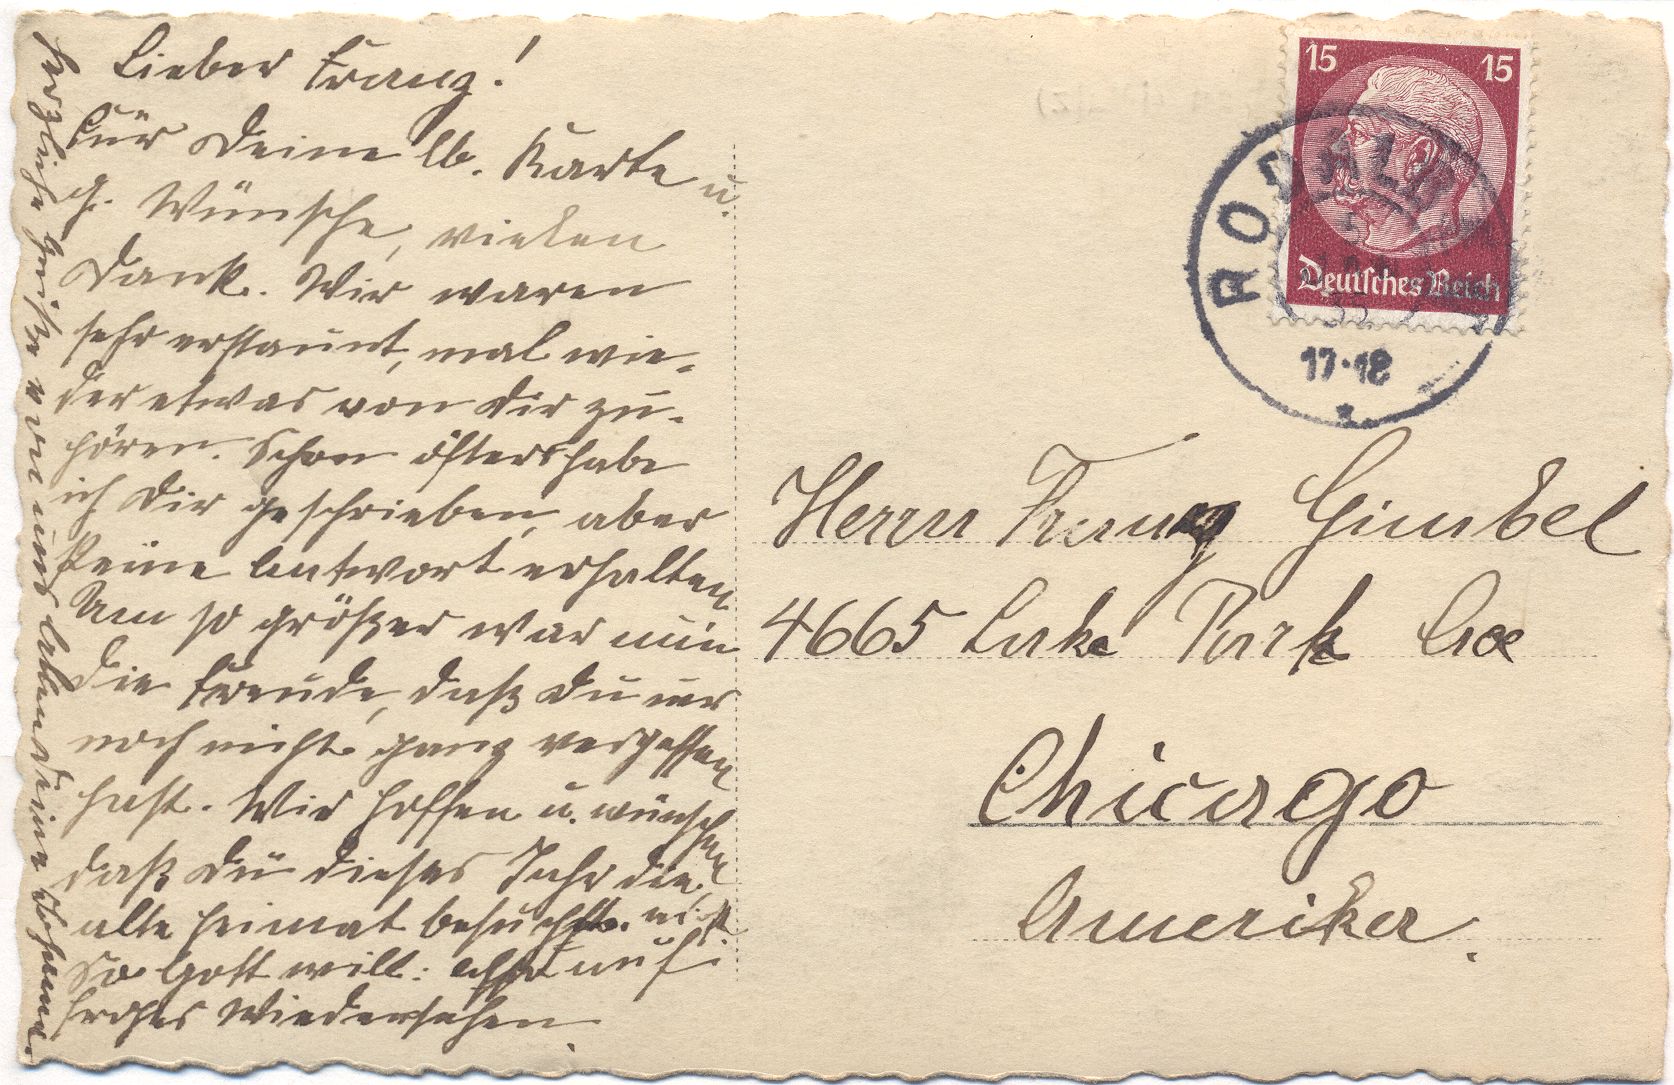 Lieber Franz!
Für Deine lb. Karte u.
g. Wünsche, vielen
Dank. Wir waren
sehr erstaunt, mal wie-
der etwas von Dir zu-
hören. Schon öfters habe
ich Dir geschrieben, aber
keine Antwort erhalten
Um so größer war nun
die Freude, daß Du uns
noch nicht ganz vergessen
hast. Wir hoffen u. wünschen
daß Du dieses Jahr die
alte Heimat besuchst.
So Gott will: auf
frohes Wiedersehen.
Herzliche Grüße von uns allen Deine
15 15
Deutsches Reich
RODALB
17-18
Herrn Franz Gimbel
4665 Lake Park Ave
Chicago
Amerika.